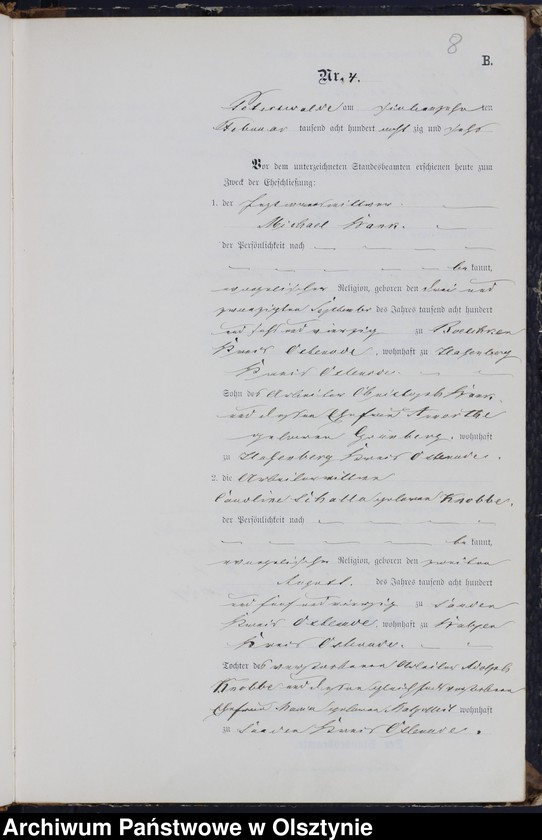 8
B.
Nr. 4.
Peterswalde am siebenzehn ten
Februar tausend acht hundert acht zig und sechs
Vor dem unterzeichneten Standesbeamten erschienen heute zum
Zweck der Eheschließung:
1. der
Michael
der Persönlichkeit nach
be kannt,
evangelischer Religion, geboren den drei und
zwanzigsten September des Jahres tausend acht hundert
und vierzig zu
Kreis Osterode, wohnhaft zu
Kreis Osterode.
Sohn des Arbeiter Christoph
und dessen Ehefrau
geborenen Grünberg, wohnhaft
zu Kreis Osterode.
2. die Arbeiterwittwe
Caroline geborene Knobbe.
der Persönlichkeit nach
be kannt,
evangelischer Religion, geboren den zweiten
August. des Jahres tausend acht hundert
und fünf und vierzig zu
Kreis Osterode, wohnhaft zu
Kreis Osterode.
Tochter des verstorbenen Arbeiter Adolph
Knobbe und dessen gleichfalls verstorbenen
Ehefrau Maria geborenen wohnhaft
zu Kreis Osterode.
Archiwum Państwowe w Olsztynie